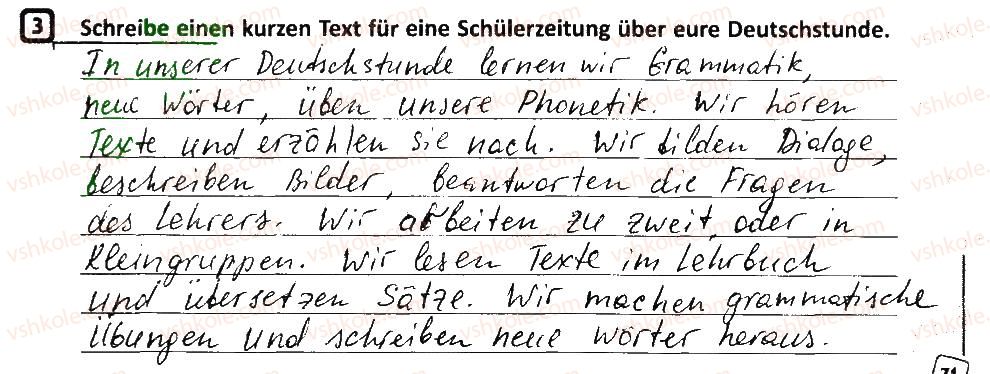 3 Schreibe einen kurzen Text für eine Schülerzeitung über eure Deutschstunde.
In unserer Deutschstunde lernen wir Grammatik,
neue Wörter, üben unsere Phonetik. Wir hören
Texte und erzählen sie nach. Wir bilden Dialoge,
beschreiben Bilder, beantworten die Fragen
des Lehrers. Wir arbeiten zu zweit oder in
Kleingruppen. Wir lesen Texte im Lehrbuch
und übersetzen Sätze. Wir machen grammatische
Übungen und schreiben neue Wörter heraus.
71